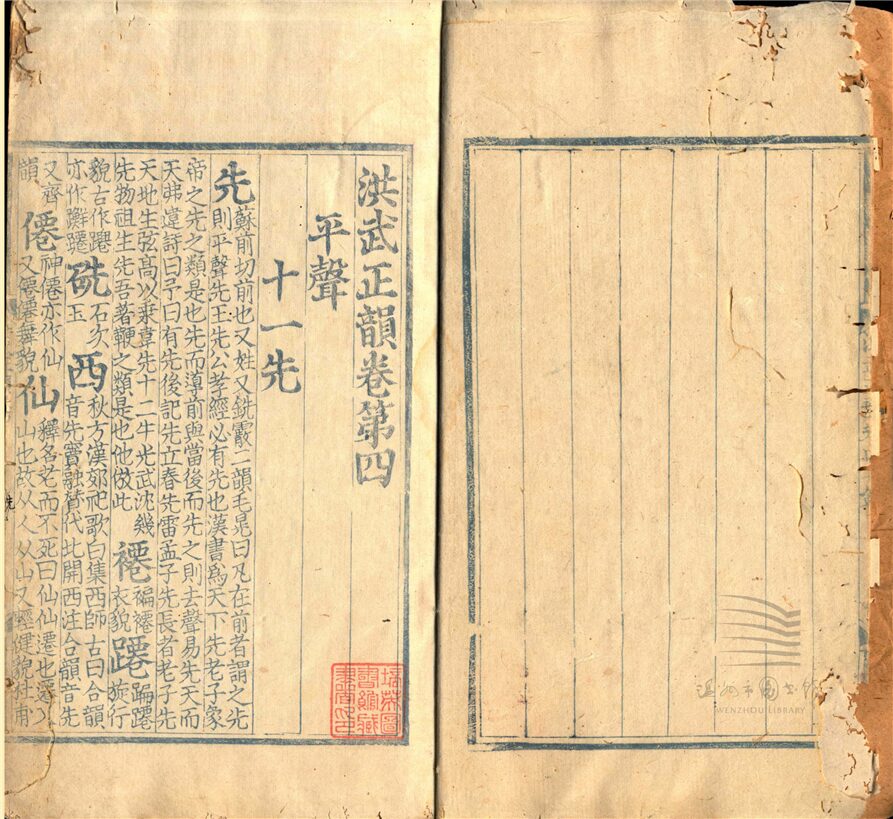 洪武正韻卷第四
平聲
十一先
先 蘇前切前也又姓又銑霰二韻毛晃曰凡在前者謂之先
則平聲先王先公孝經必有先也漢書爲天下先老子象
帝之先之類是也先而導前與當後而先之則去聲易先天而
天弗違詩曰予曰有先後記先立春先雷孟子先長者老子先
天地生弦高以乗韋先十二牛光武沈幾
先物祖生先吾著鞭之類是也他倣此
褼 褊褼
衣貌
蹮 蹁蹮
旋行
貌古作
亦作
石次
玉
西 秋方漢郊祀歌白集西師古曰合韻
音先竇融贊代北開西注合韻音先
又齊
韻
僊 神僊亦作仙
又僊僊舞貌
仙 釋名老而不死曰仙仙遷也遷入
山也故从人从山又輕健貌杜甫
温州市图书馆
WENZHOU LIBRARY